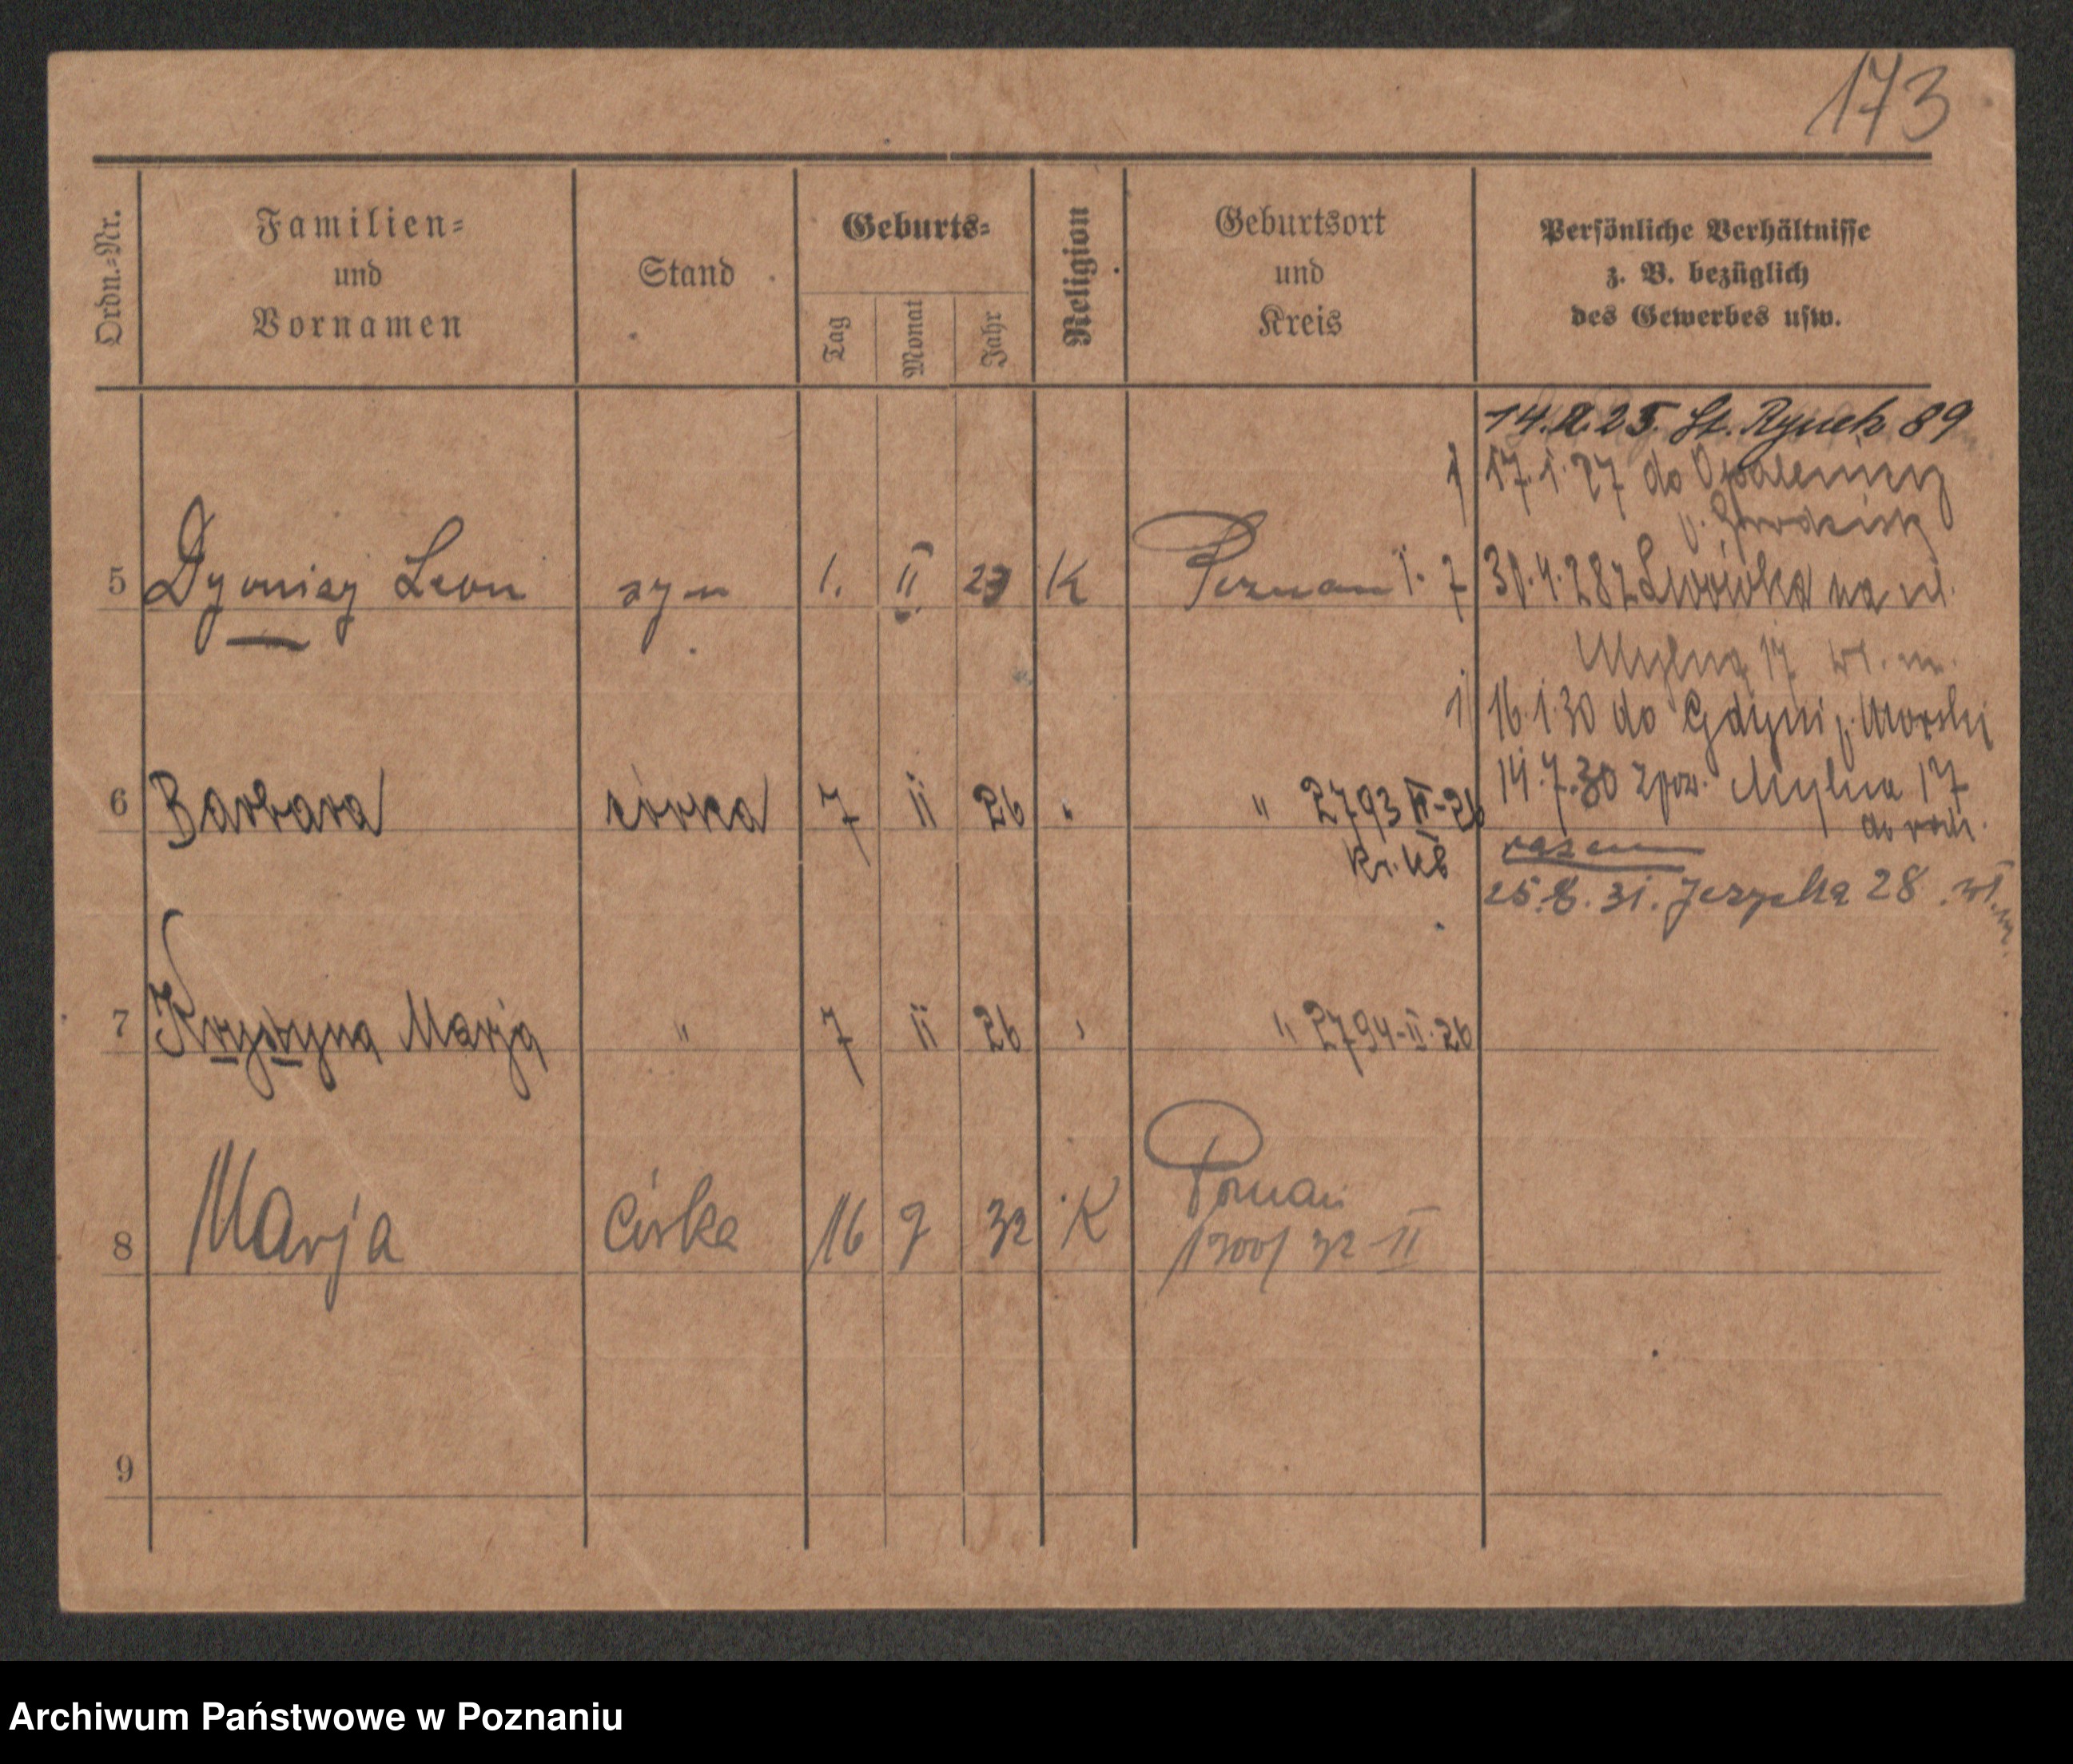 173
Ordn.-Nr.
Familien-
und
Vornamen
Stand
Geburts-
Tag
Monat
Jahr
Religion
Geburtsort
und
Kreis
Persönliche Verhältnisse
z. B. bezüglich
des Gewerbes usw.
14. 2. 25. St. Rynek 89
1 17. 1. 27 do Opalenicy
p. Grodzisk
5 Dyonizy Leon syn 1. II 23 K Poznań 1. 7 30. 4. 28 z Lwówka na ul.
Mylna 17 wł. m.
1 16. 1. 30 do Gdyni p. Morski
14. 7. 30 zpow. Mylna 17
6 Barbara córka 7 II 26 " " 2793 II-26
do rodz.
razem
25. 8. 31. Jeżycka 28. wł. m.
7 Krystyna Marja " 7 II 26 " " 2794-II-26
8 Marja Córka 16 9 32 K Poznań
32 II
9
Archiwum Państwowe w Poznaniu